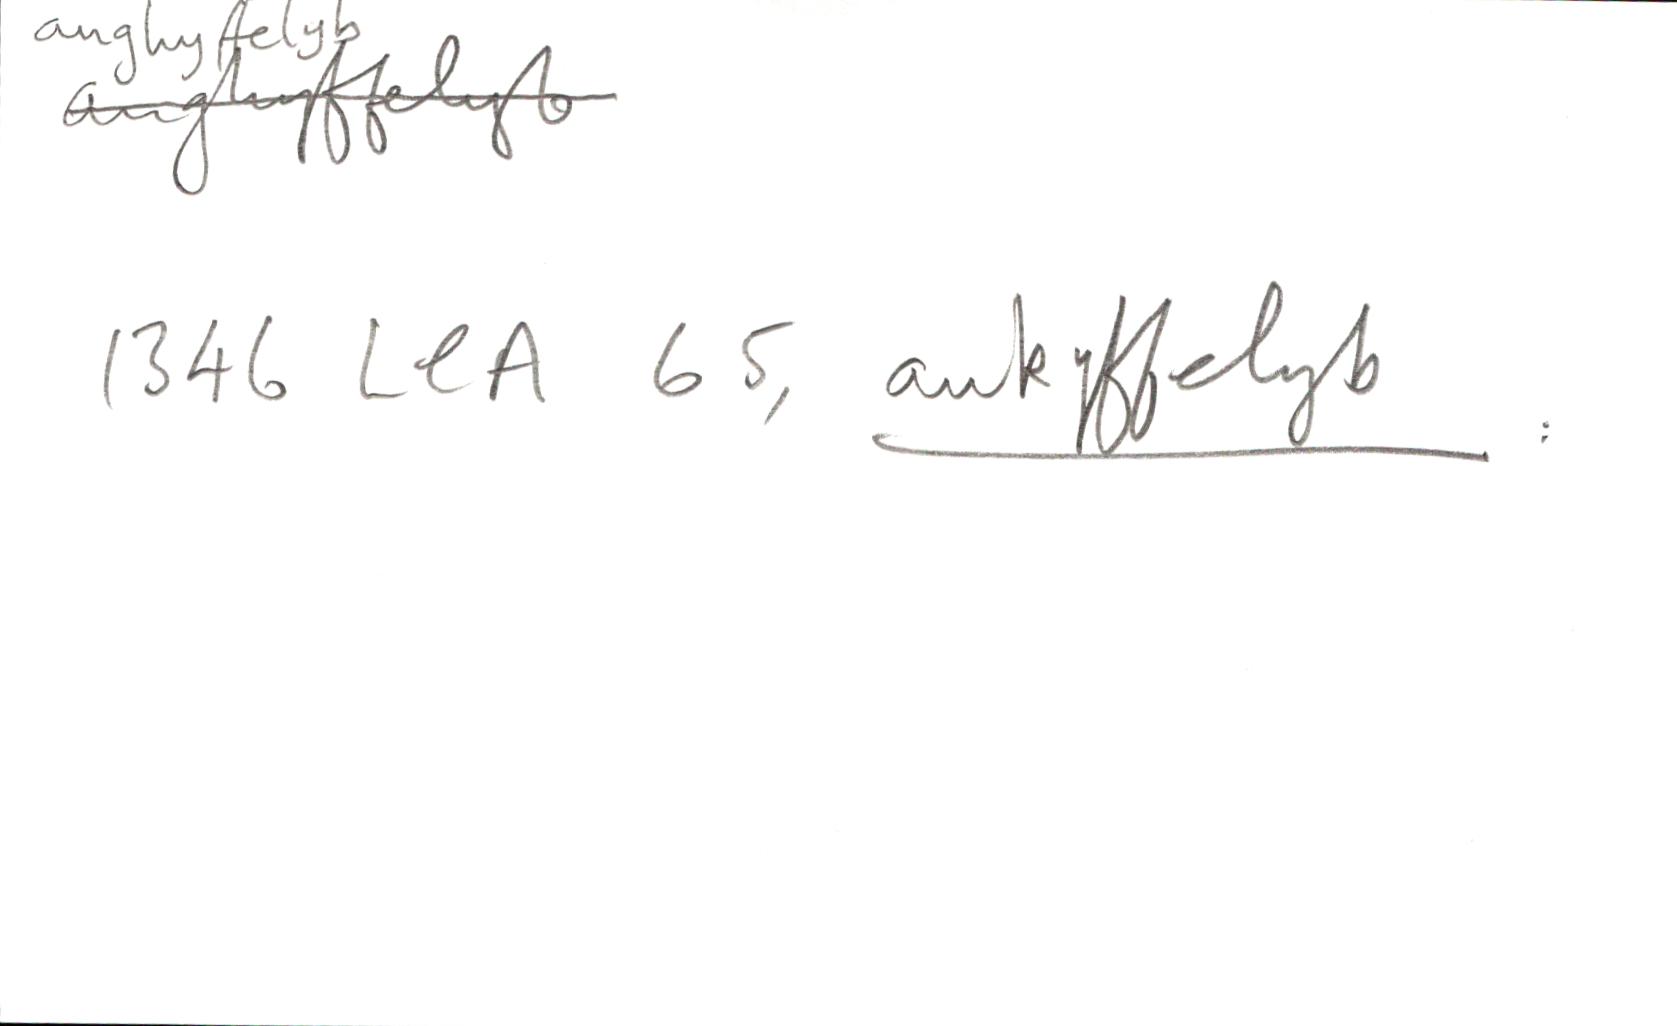 anghyffelyb
anghyffelyb
1346 LlA 65, ankyffelyb :